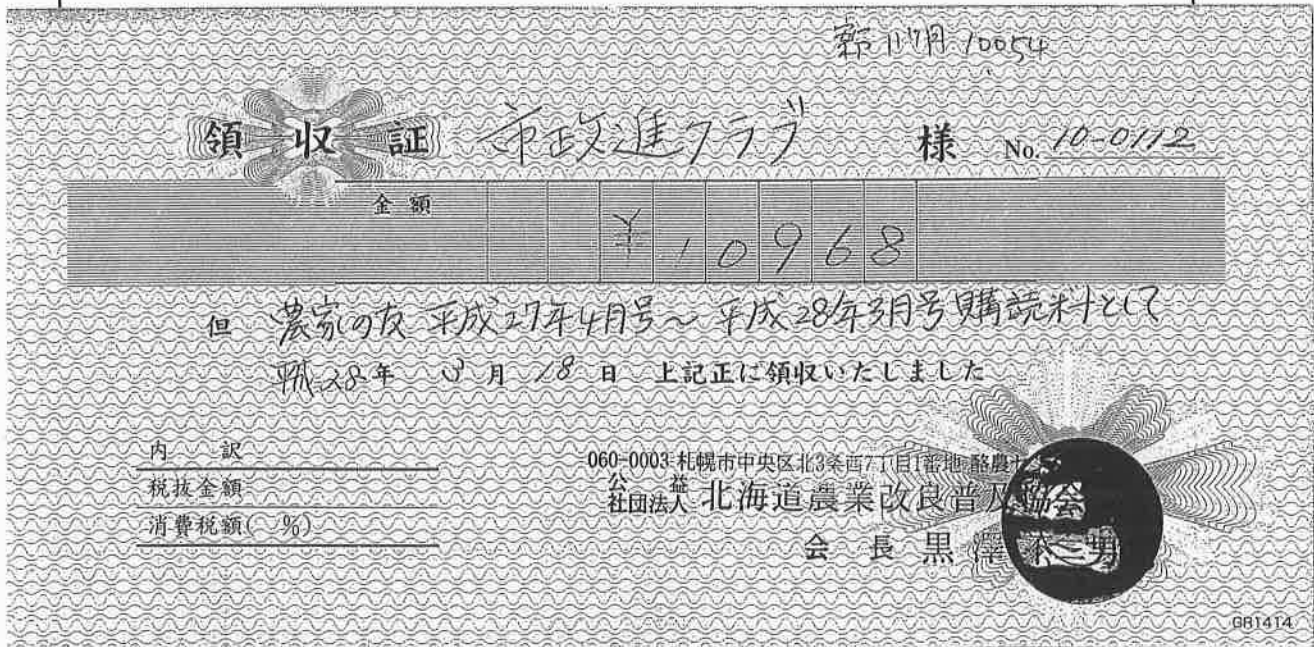 10054
領収証 市政進クラブ 様 No. 10-0112
金額
¥10968
但 農家の友 平成27年4月号～平成28年3月号購読料として
平成28年 3月 18日 上記正に領収いたしました
内訳
060-0003 札幌市中央区北3条西7丁目1番地 酪農
税抜金額
公益社団法人 北海道農業改良普及協会
消費税額( %)
会長 黒澤不二男
GB1414